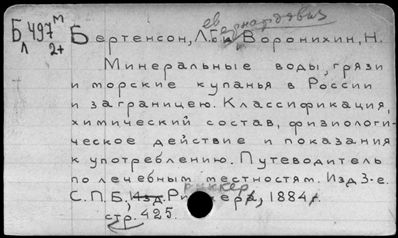 Б 497 м
Л 2+
ев Бернардович
Бертенсон, Л. Б. и Воронихин, Н.
Минеральные воды, грязи
и морские купанья в России
и заграницею. Классификация,
химический состав, физиологи-
ческое действие и показания
к употреблению. Путеводитель
по лечебным местностям. Изд 3-е.
Риккер
С.П.Б, Изд. Риккера, 1884 г.
стр. 425.